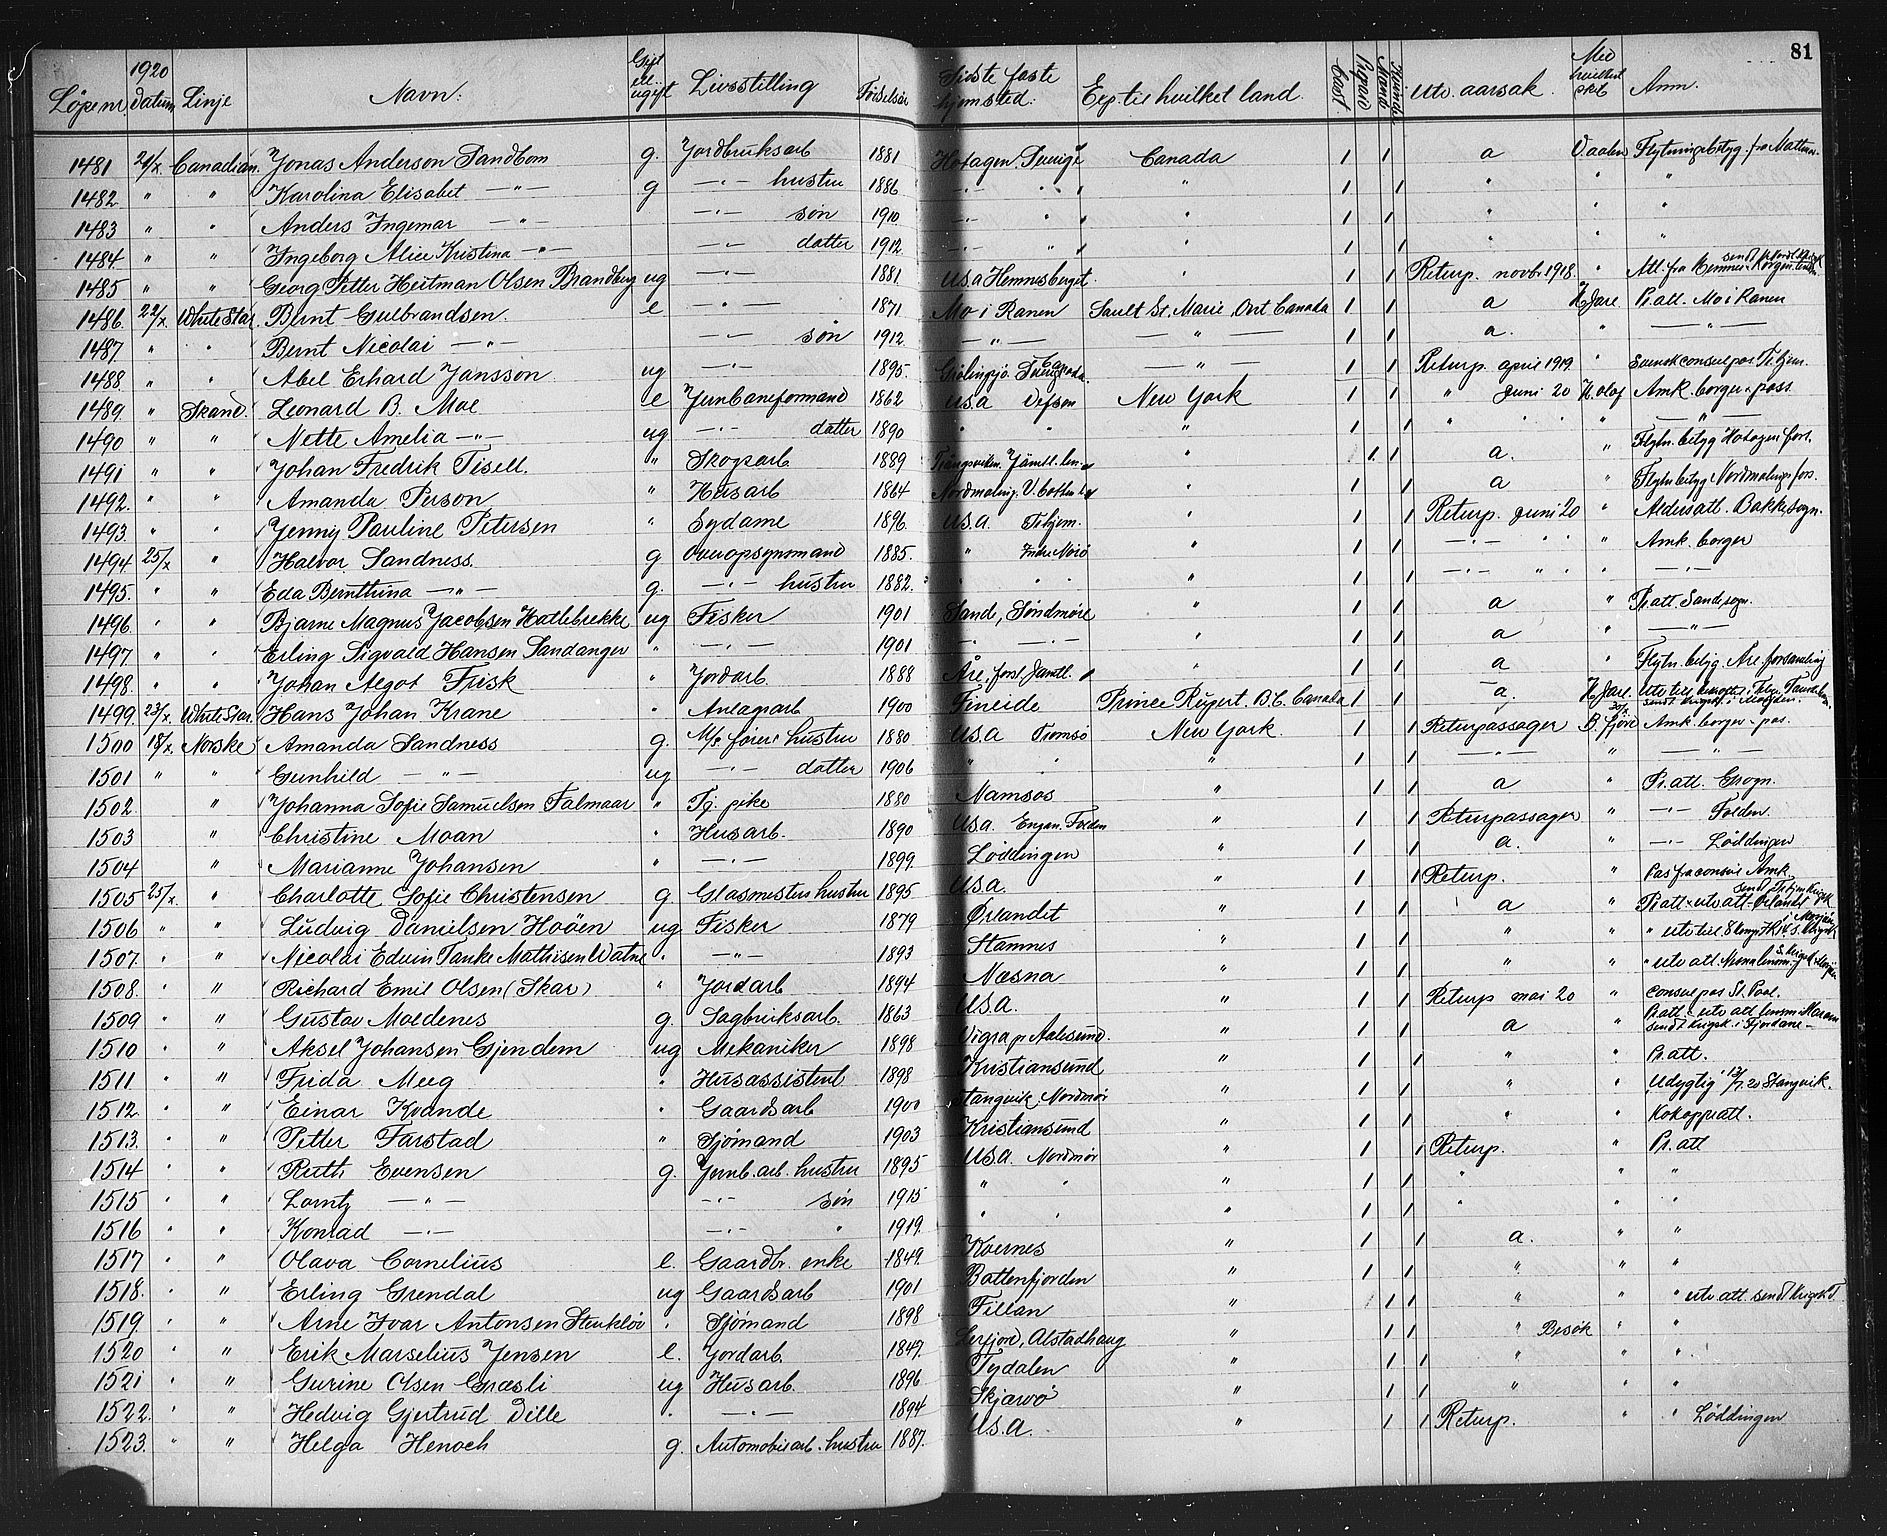 81
Løpenr. 1920 datum Linje Navn: Gift el. ugift Livsstilling Fødselsår Sidste faste hjemsted: Eg. til hvilket land. Utv. aarsak. Med hvilket skib Anm.
1481 21/x Canadian. Jonas Anderson Sandbom g. Jordbruksarb 1881 Hotagen. Sverige Canada 1 1 a Vaalen Flytningsbetyg. fra Mattmar.
1482 " " Karolina Elisabet —"— g —"— hustru 1886 —"— " " 1 1 " " "
1483 " " Anders Ingemar —"— —"— søn 1910 —"— " " 1 1 " " "
1484. " " Ingeborg Alice Kristina —"— —"— datter 1912 —"— " " 1 1 " " "
1485 " " Georg Petter Heitman Olsen Brandberg ug —"— 1881. U.S.A Hemnesberget. " 1 1 Returp. novbr. 1918. " Att. fra Hemnes
1486. 22/x. White Star. Bernt Gulbrandsen. e —"— 1871 Mo i Ranen Sault St. Marie, Ont Canada 1 1 a H Jarl. Pr. att. Mo i Ranen
1487. " " Bernt Nicolai —"— —"— søn 1912. —"— —"— 1 1 a. " —"—
1488. " " Abel Erhard Jansson ug —"— 1895. —"— 1 1 Returp. april 1919. " Svensk consulpas Trhjem.
1489. " Skand. Leonard B. Moe e Jernbaneformand 1862 U.S.A Vefsen New York 1 1 " juni 20 H. olaf Amk. borger. pass
1490 " " Nette Amelia —"— ug —"— datter 1890 " " " 1 1 " " " " —"—
1491 " " Johan Fredrik Tisell. " Skogsarb 1889 Trångsviken. Jämtl. len. " 1 1 a. " Flytn. betyg Hotagen fors.
1492. " " Amanda Person " Husarb 1864 Nordmaling. V. botten " 1 1 a " Flytn betyg Nordmalings fors.
1493. " " Jenny Pauline Petersen " Sydame 1896. U.S.A. Trhjem. " 1 1 Returp. juni 20 " Aldersatt. Bakke sogn.
1494 25/x " Halvor Sandness. g Overopsynsmand 1885. " Indre Norø " 1 1 —"— " " " Amk. borger
1495. " " Eda Bernttina —"— g. —"— hustru 1882. " " " 1 1 —"— " " " —"—
1496. " " Bjarne Magnus Jacobsen Hatlebrekke ug Fisker 1901 Sand, Søndmøre " 1 1 a " Pr att. Sande sogn.
1497. " " Erling Sigvald Hansen Sandanger " —"— 1901 " —"— " 1 1 a " —"—
1498. " " Johan Aegot Frisk " Jordarb. 1888 Åre. fors. Jämtl. " 1 1 a " Flytn. betyg. Åre. forsamling
1499. 23/x. White Star. Hans Johan Krane " Anlægsarb 1900 Fineide Prince Rupert. B.C. Canada 1 1 a. H Jarl.
1500 18/x. Norske Amanda Sandness g. M/s fører hustru 1880 U.S.A Tromsø New York. 1 1 Returpassager B. fjord Amk. borger. pas.
1501 " " Gunhild —"— ug —"— datter 1906 " " " 1 1 —"— —"—
1502. " Johanna Sofie Samuelsen Falmaar " Tj. pike 1880 Namsos " 1 1 a " Pr. att. Grogn.
1503 " Christine Moan " Husarb. 1890 U.S.A. Engan. Folden " 1 1 Returpassager " —"— Folden.
1504 " Marianne Johansen " —"— 1899. Løddingen " 1 1 a. " —"— Løddingen
1505 25/x. " Charlotte Sofie Christensen g. Glasmester hustru 1895 U.S.A. " 1 1 Returp. " Pas fra consul Amk.
1506 " " Ludvig Danielsen Hoøen ug Fisker 1879 Ørlandet " 1 1 a " Pr att. utv att. Ørlandet
1507. " " Nicolai Edvin Tanke Mathisen Watne " —"— 1893 Stamnes " 1 1 " "
1508. " " Richard Emil Olsen (Skar) " Jordarb 1894 Næsna " 1 1 " "
1509 " " Gustav Moldenes g. Sagbruksarb. 1863 U.S.A. " 1 1 Returp mai 20 " consulpas St. Paul.
1510 " " Aksel Johansen Gjendem ug Mekaniker 1898 Vigra pr Aalesund. " 1 1 a " Pr att. utv att sendt krigsk. i Fjordane —
1511 " " Frida Meeg " Husassistent 1898 Kristiansund " 1 1 " " Pr. att.
1512. " " Einar Kvande " Gaardsarb 1900 Stangvik, Nordmør " 1 1 " " Udygtig 13/7. 20 Stangvik.
1513. " " Petter Farstad " Sjømand 1903 Kristiansund " 1 1 " " Kokoppratt.
1514 " " Ruth Evensen g. Jernb. arb. hustru 1895 U.S.A. Nordmør " 1 1 Returp. " Pr. att
1515 " " Lorntz —"— —"— søn 1915 " " " 1 1 " " "
1516 " " Konrad —"— —"— " 1919. " " " 1 1 " " "
1517 " " Olava Cornelius e. Gaardbr. enke 1849. Kvernes " 1 1 a. " "
1518. " " Erling Grendal ug Gaardsarb 1901 Battenfjorden " 1 1 " " "
1519. " " Arne Ivar Antonsen Stenkløv " Sjømand 1898 Fillan " 1 1 " " " utv att. sendt krigsk T.
1520 " " Erik Marselius Jensen e. Jordarb. 1849. Leirfjord, Alstadhaug " 1 1 " Besøk " "
1521 " " Gurine Olsen Græsli ug Husarb. 1896 Tydalen " 1 1 " " "
1522. " " Hedvig Gjertrud Dille " —"— 1894 Skjærvø " 1 1 " " "
1523. " " Helga Henoch g. Automobilarb. hustru 1887. U.S.A. " 1 1 Returp. " " Løddingen